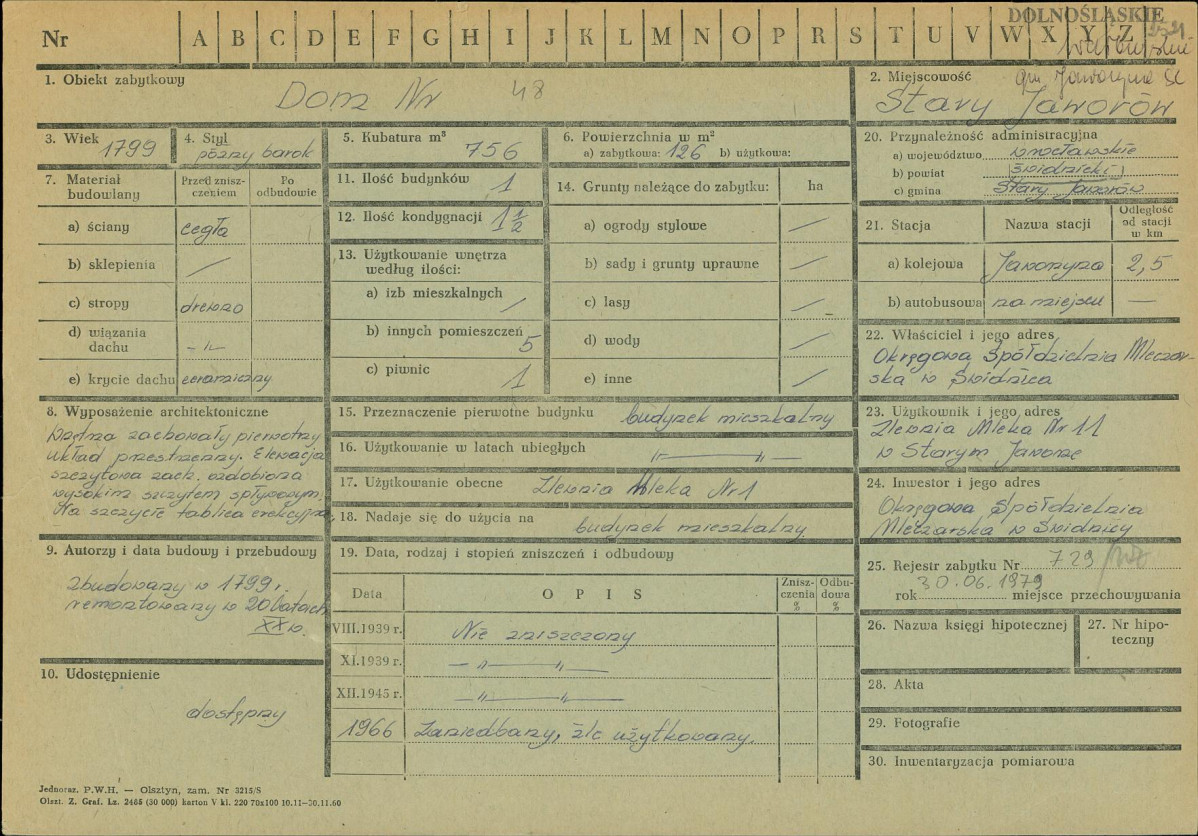 DOLNOŚLĄSKIE
Nr A B C D E F G H I J K L M N O P R S T U V W X Y Z
1. Obiekt zabytkowy
Dom Nr 48
2. Miejscowość gm. Jaworzyna Śl
Stary Jaworów
3. Wiek 1799
4. Styl
późny barok
5. Kubatura m³ 756
6. Powierzchnia w m²
a) zabytkowa: 126 b) użytkowa:
7. Materiał budowlany
Przed zniszczeniem
Po odbudowie
a) ściany cegła
b) sklepienia —
c) stropy drewno
d) wiązania dachu -"-
e) krycie dachu ceramiczny
8. Wyposażenie architektoniczne
Wnętrza zachowały pierwotny
układ przestrzenny. Elewacja
szczytowa zach. ozdobiona
wysokim szczytem spływowym.
Na szczycie tablica erekcyjna.
9. Autorzy i data budowy i przebudowy
zbudowany w 1799 r.
remontowany w 20 latach
XX w.
10. Udostępnienie
dostępny
11. Ilość budynków 1
12. Ilość kondygnacji 1 1/2
13. Użytkowanie wnętrza
według ilości:
a) izb mieszkalnych /
b) innych pomieszczeń 5
c) piwnic 1
14. Grunty należące do zabytku: ha
a) ogrody stylowe —
b) sady i grunty uprawne —
c) lasy —
d) wody —
e) inne —
15. Przeznaczenie pierwotne budynku budynek mieszkalny
16. Użytkowanie w latach ubiegłych —"—"—
17. Użytkowanie obecne Zlewnia Mleka Nr 1
18. Nadaje się do użycia na budynek mieszkalny
19. Data, rodzaj i stopień zniszczeń i odbudowy
Data OPIS Zniszczenia % Odbudowa %
VIII.1939 r. Nie zniszczony
XI.1939 r. —"—"—
XII.1945 r. —"—"—
1966 Zaniedbany, źle użytkowany.
20. Przynależność administracyjna
a) województwo wrocławskie
b) powiat świdnicki
c) gmina Stary Jaworów
21. Stacja Nazwa stacji Odległość od stacji w km
a) kolejowa Jaworzyna 2,5
b) autobusowa na miejscu —
22. Właściciel i jego adres
Okręgowa Spółdzielnia Mleczar-
ska w Świdnica
23. Użytkownik i jego adres
Zlewnia Mleka Nr 11
w Starym Jaworze
24. Inwestor i jego adres
Okręgowa Spółdzielnia
Mleczarska w Świdnicy
25. Rejestr zabytku Nr 729
30.06.1979
rok miejsce przechowywania
26. Nazwa księgi hipotecznej
27. Nr hipo-
teczny
28. Akta
29. Fotografie
30. Inwentaryzacja pomiarowa
Jednoraz. P.W.H. — Olsztyn, zam. Nr 3215/S
Olszt. Z. Graf. Lz. 2485 (30 000) karton V kl. 220 70x100 10.11—30.11.60